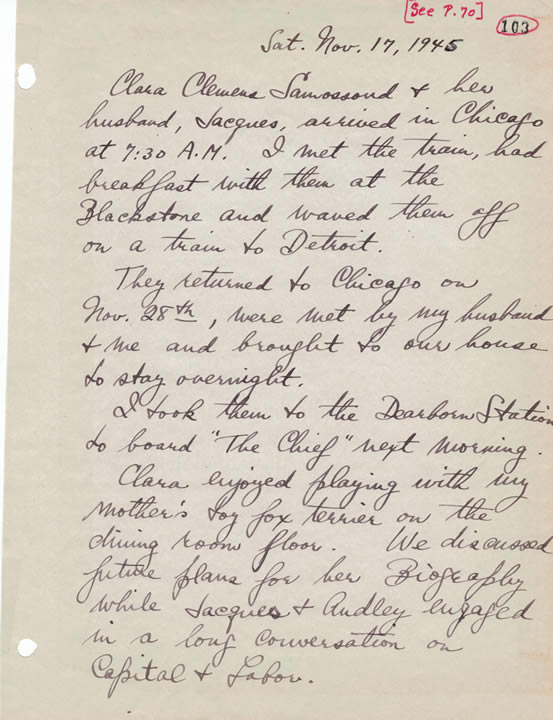 [See P.70]
103
Sat. Nov. 17, 1945
Clara Clemens Samossoud & her
husband, Jacques, arrived in Chicago
at 7:30 A.M. I met the train, had
breakfast with them at the
Blackstone and waved them off
on a train to Detroit.
They returned to Chicago on
Nov. 28th, were met by my husband
& me and brought to our house
to stay overnight.
I took them to the Dearborn Station
to board "The Chief" next morning.
Clara enjoyed playing with my
mother's toy fox terrier on the
dining room floor. We discussed
future plans for her Biography
while Jacques & Audley engaged
in a long conversation on
Capital & Labor.